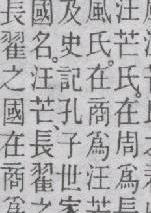 汪芒氏。在周爲長
風氏。在商爲汪芒
及史記孔子世家
國名。汪芒、長翟之
長翟之國在商爲